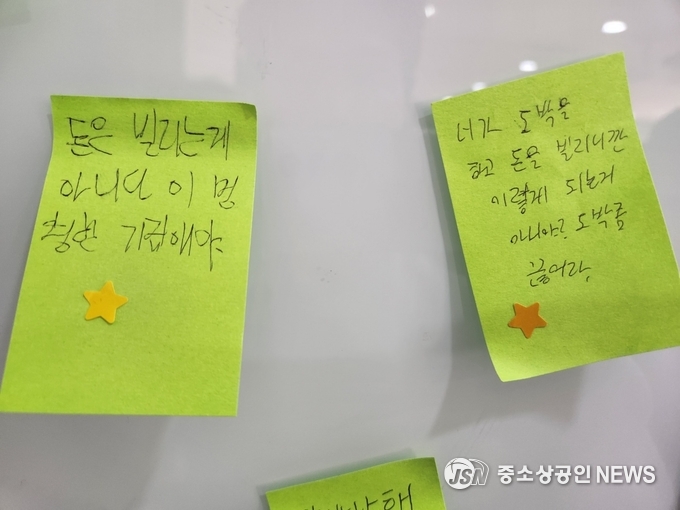 돈은 빌리는게
아니다 이 멍
청한 기립애야
너가 도박을
하고 돈을 빌리니깐
이렇게 되는거
아니야! 도박좀
끊어라,
해
JSN 중소상공인 NEWS